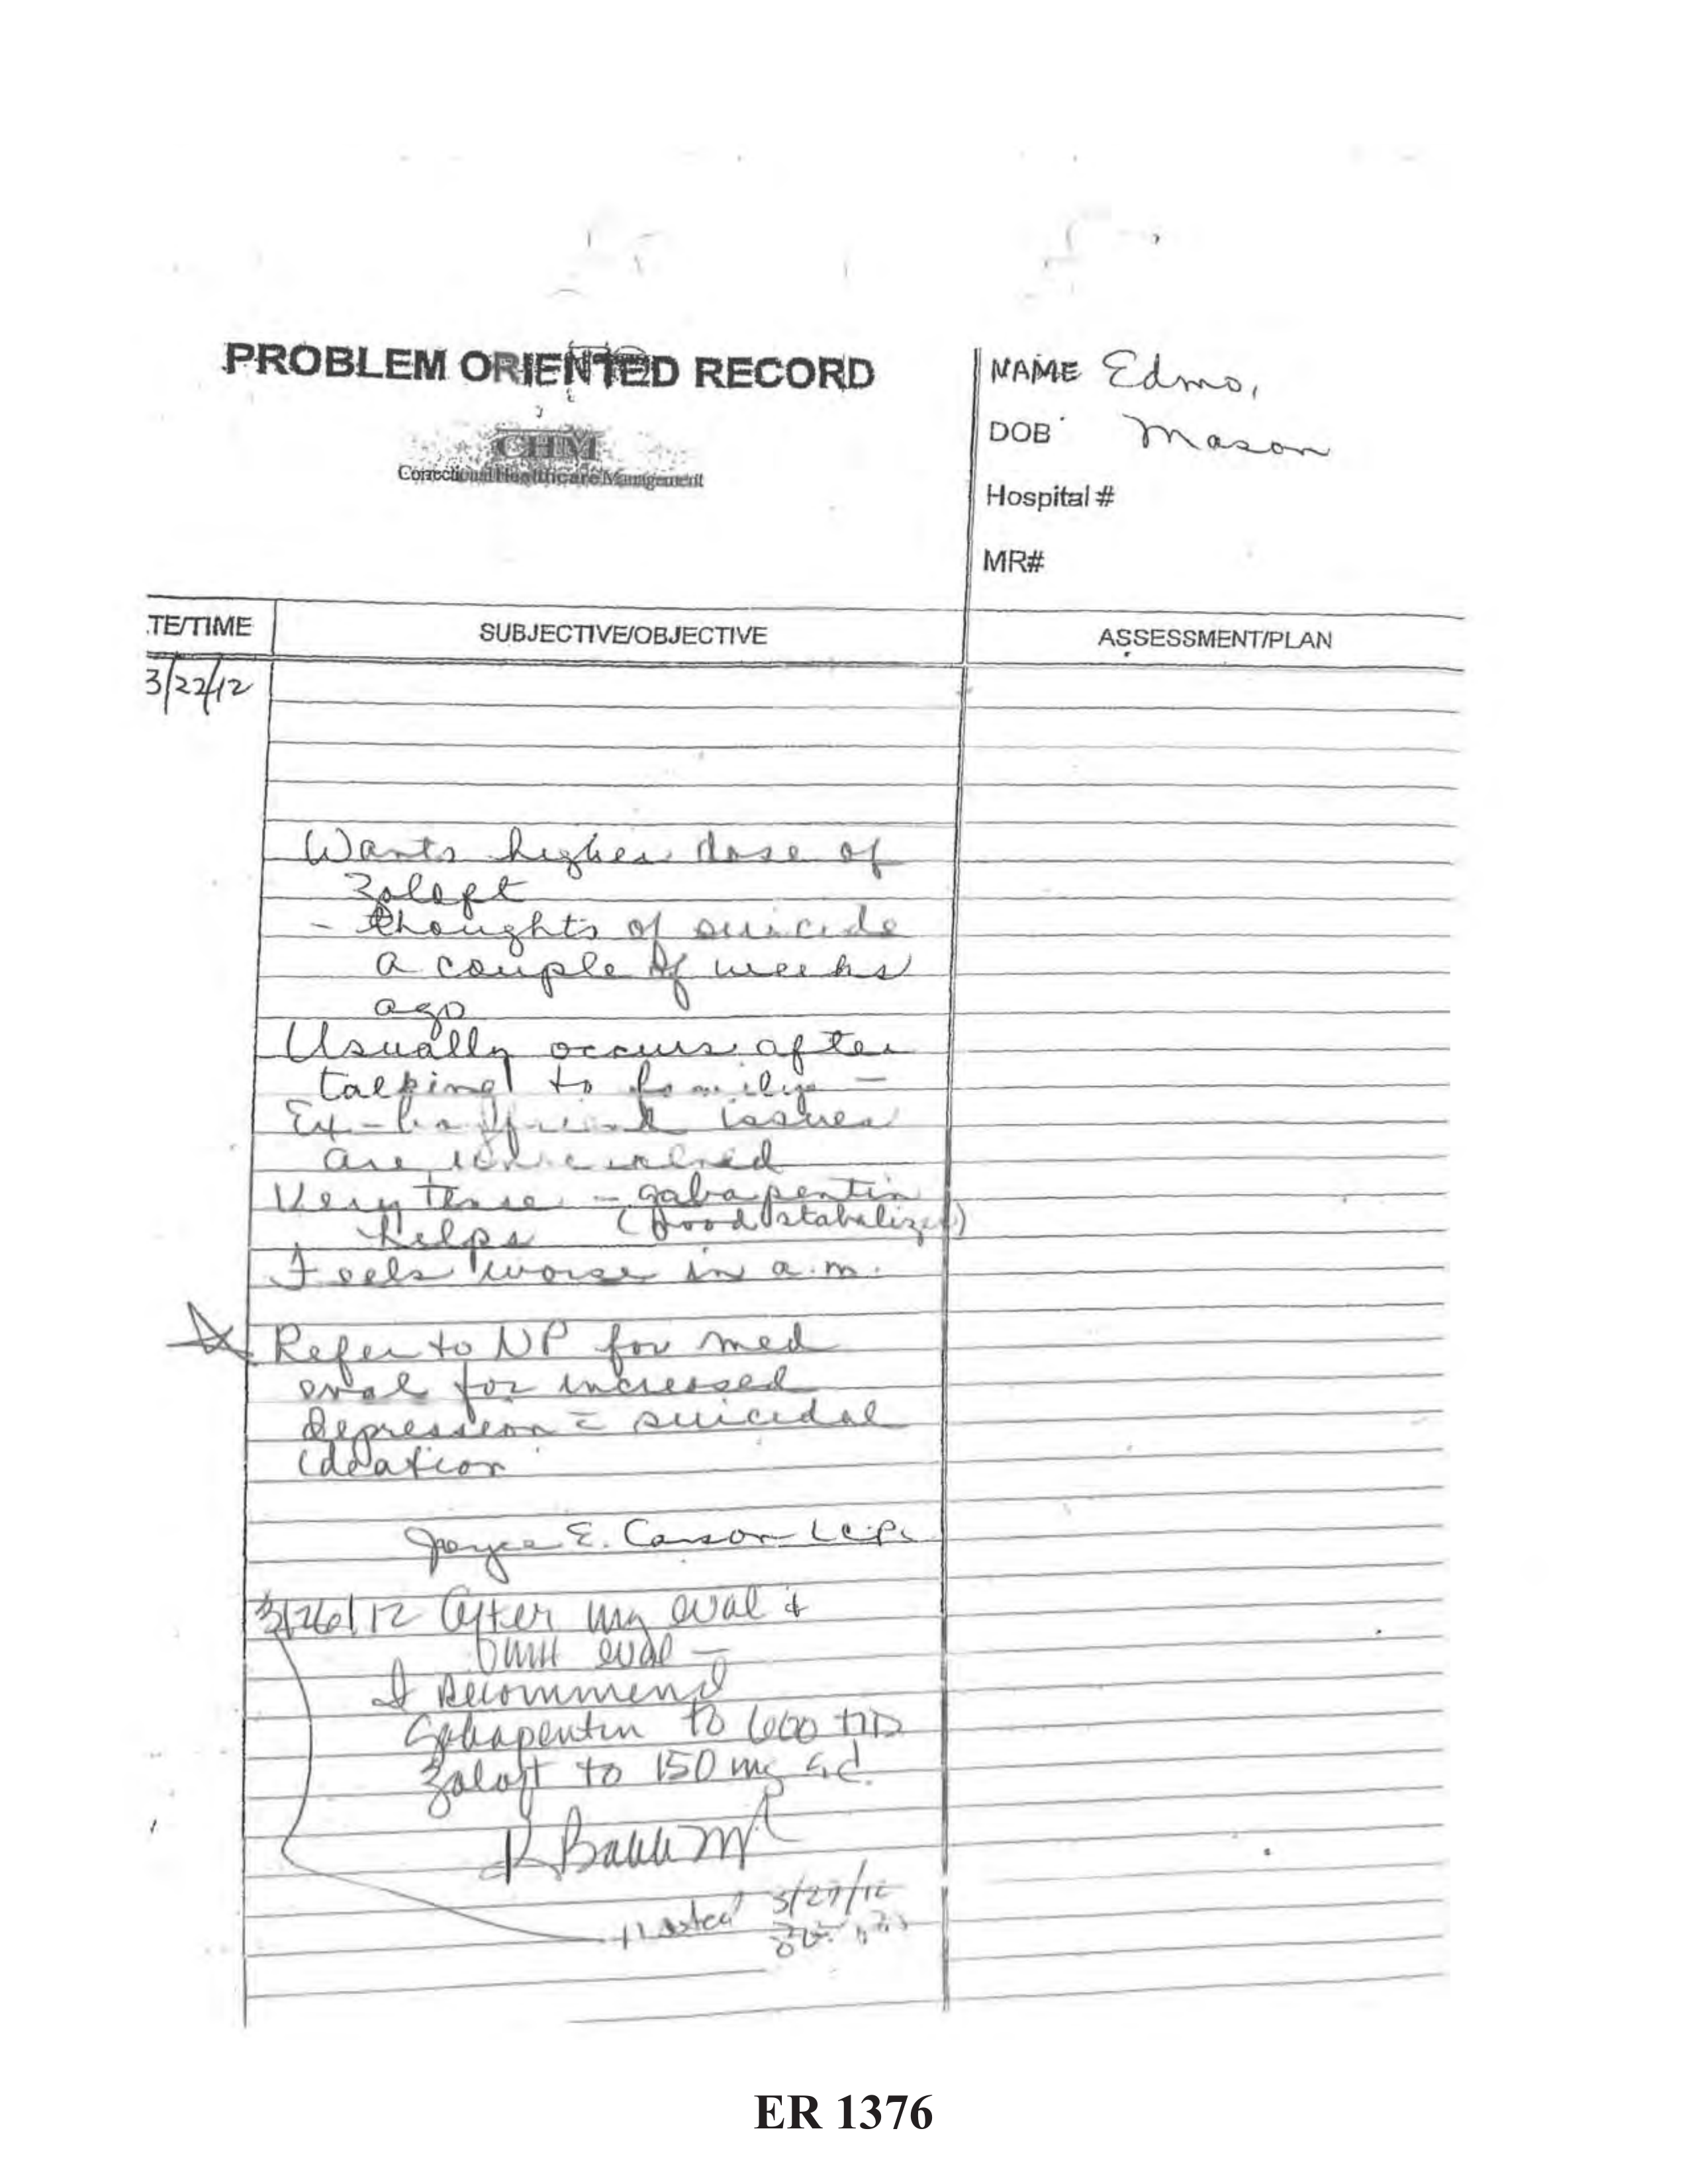 PROBLEM ORIENTED RECORD
CHM
Correctional Healthcare Management
NAME Edmo,
DOB Mason
Hospital #
MR#
TE/TIME
SUBJECTIVE/OBJECTIVE
ASSESSMENT/PLAN
3/22/12
Wants higher dose of
Zoloft
- thoughts of suicide
a couple of weeks
ago
Usually occurs after
talking to family -
Ex-boyfriend issues
are
Very tense - gabapentin
helps (mood stabalizer)
Feels worse in a.m.
Refer to NP for med
eval for increased
depression c suicidal
ideation
Joyce E. Carson LCPC
3/26/12 After my eval &
MH eval -
I recommend
Gabapentin to 600 TID
Zoloft to 150 mg q.d.
Noted 3/27/12
ER 1376